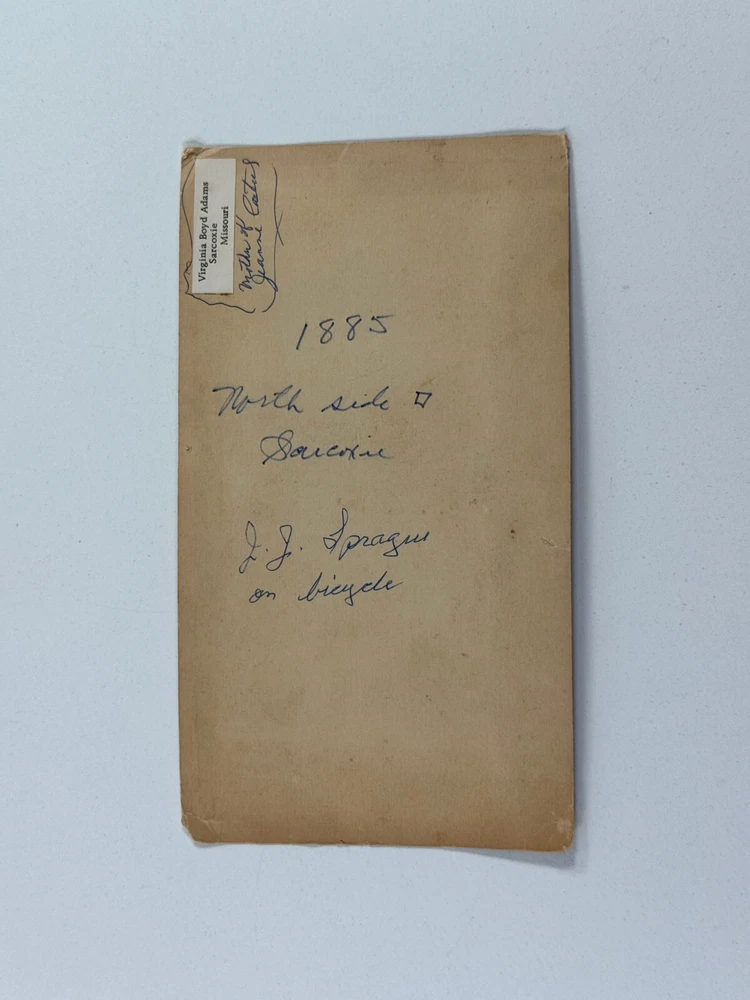 Virginia Boyd Adams
Sarcoxie
Missouri
Mother of
Jeanne
1885
North side □
Sarcoxie
J. J. Sprague
on bicycle